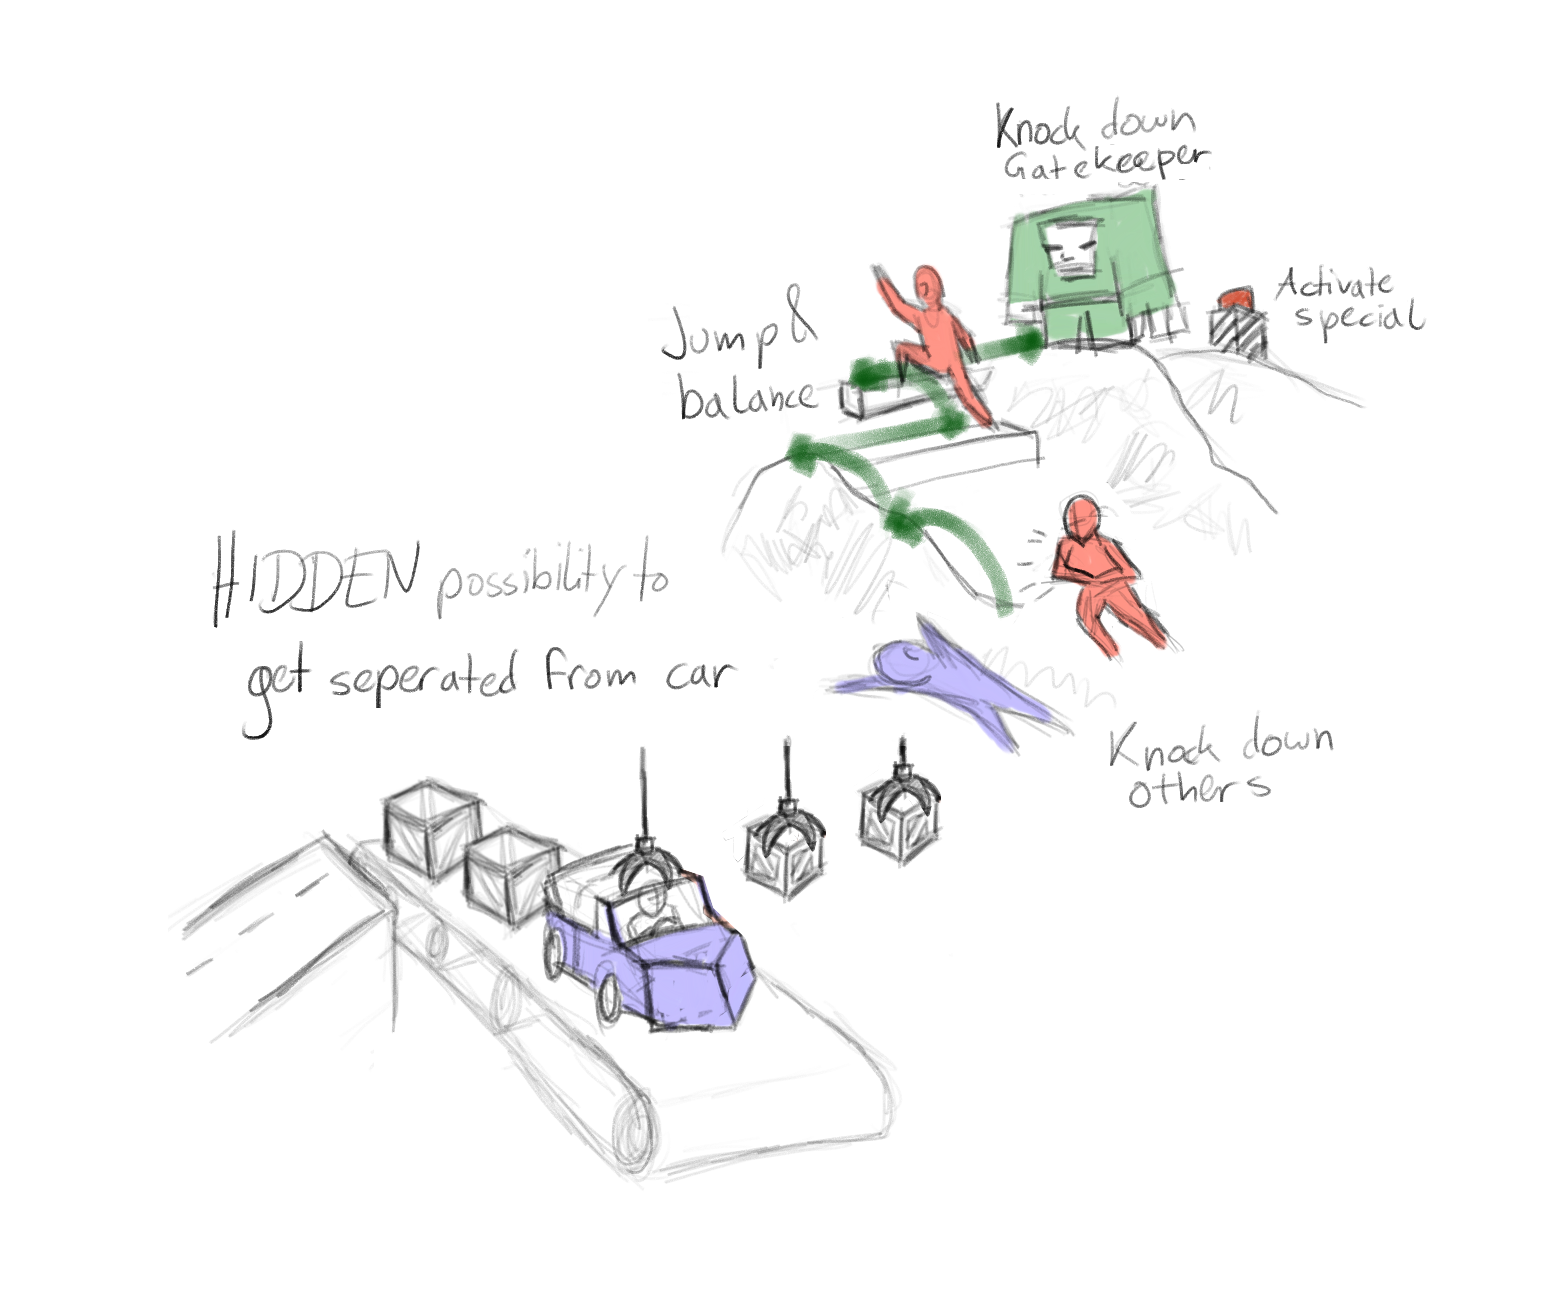 Knock down
Gatekeeper
Activate
special
Jump &
balance
HIDDEN possibility to
get seperated from car
Knock down
others